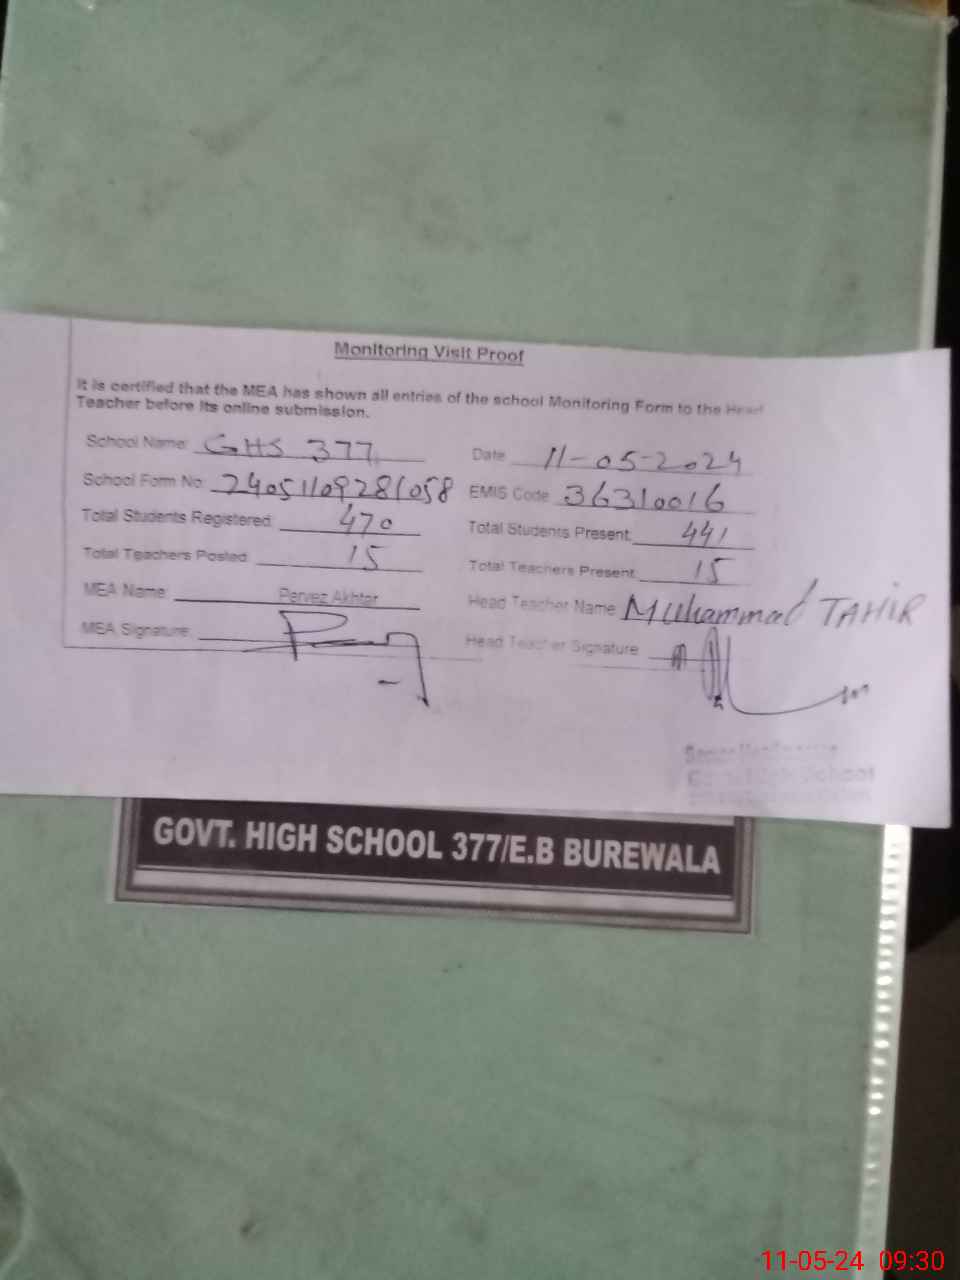 Monitoring Visit Proof
It is certified that the MEA has shown all entries of the school Monitoring Form to the Head
Teacher before its online submission.
School Name: GHS 377 Date 11-05-2024
School Form No: 24051109281058 EMIS Code 36310016
Total Students Registered: 470 Total Students Present: 441
Total Teachers Posted: 15 Total Teachers Present: 15
MEA Name: Pervez Akhter Head Teacher Name Muhammad TAHIR
MEA Signature: Head Teacher Signature
Senior
High School
GOVT. HIGH SCHOOL 377/E.B BUREWALA
11-05-24 09:30